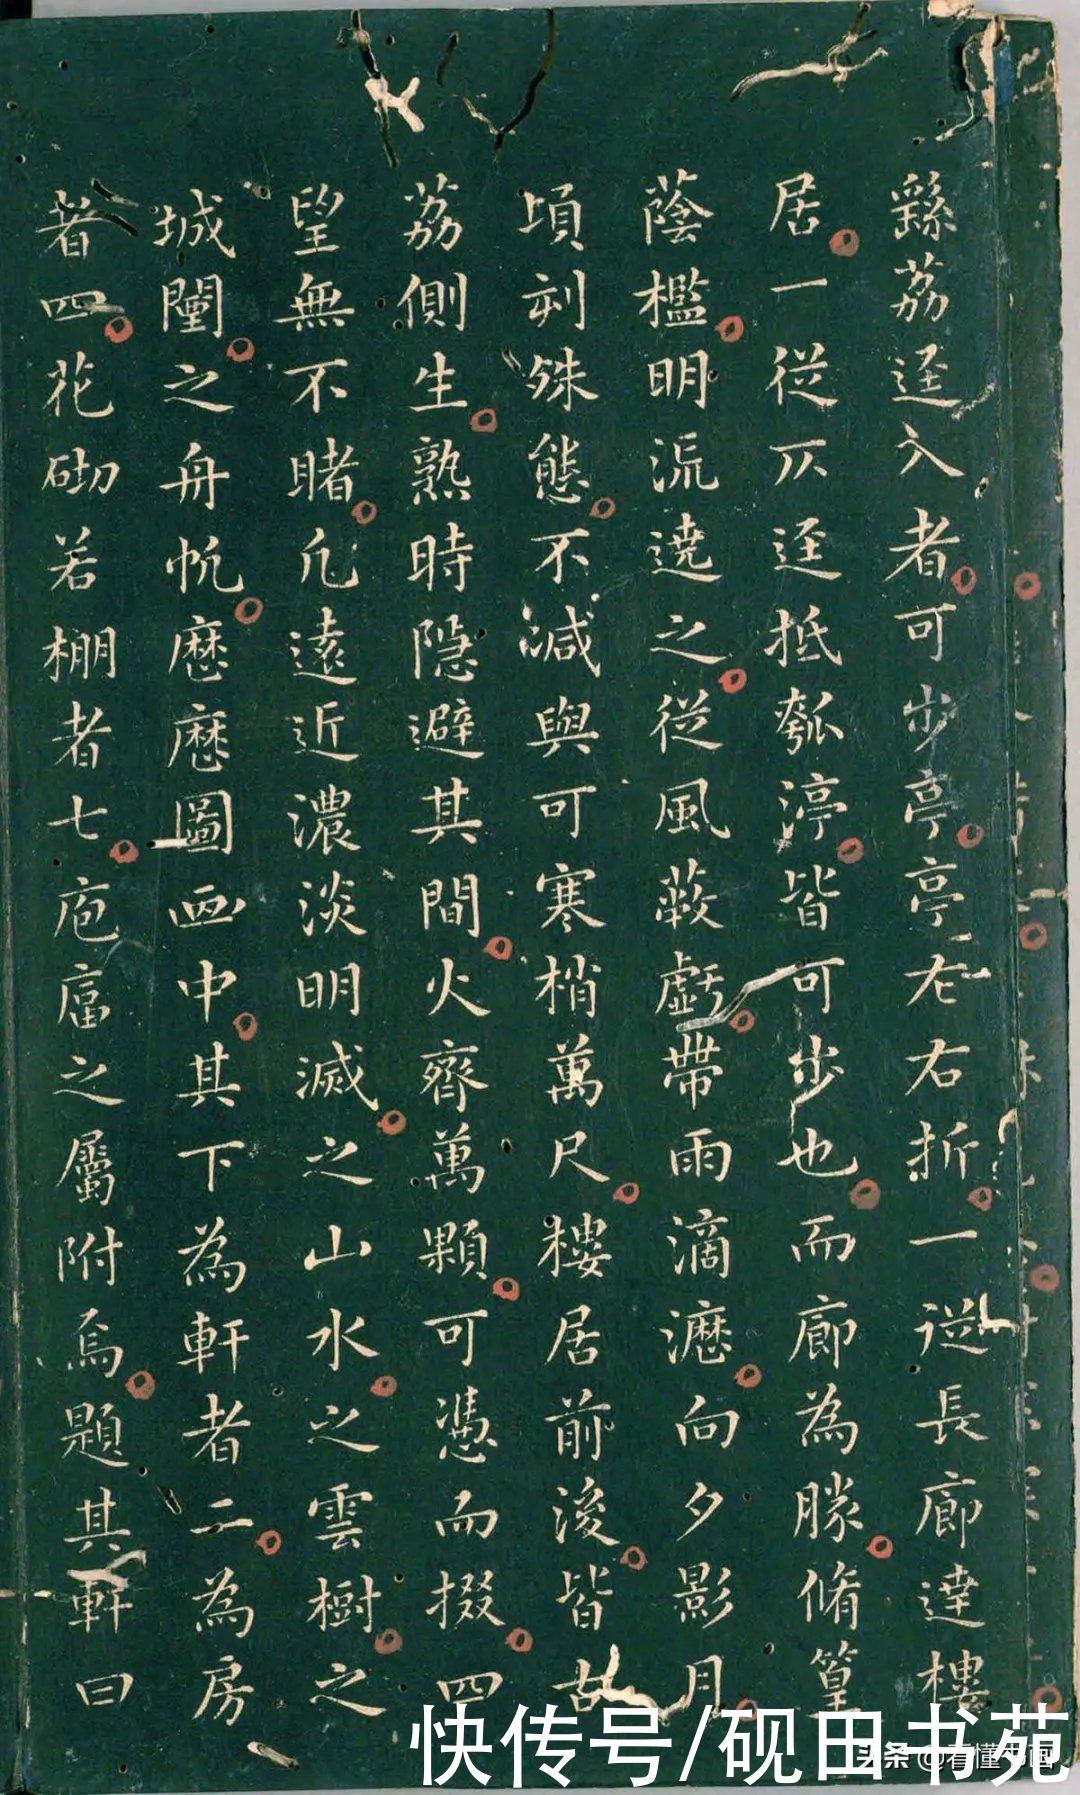 繇荔逕入者可步亭亭左右折一從長廊達樓
居一從仄逕抵瓠渟皆可步也而廊為勝脩篁
蔭檻明流遶之從風蔽虧帶雨滴瀝向夕影月
頃刻殊態不減與可寒梢萬尺樓居前後皆古
荔側生熟時隱避其間火齊萬顆可憑而掇四
望無不睹凡遠近濃淡明滅之山水之雲樹之
城闉之舟帆歷歷圖画中其下為軒者二為房
者四花砌若棚者七庖湢之屬附焉題其軒曰
快传号/砚田书苑
头条 @看懂书画